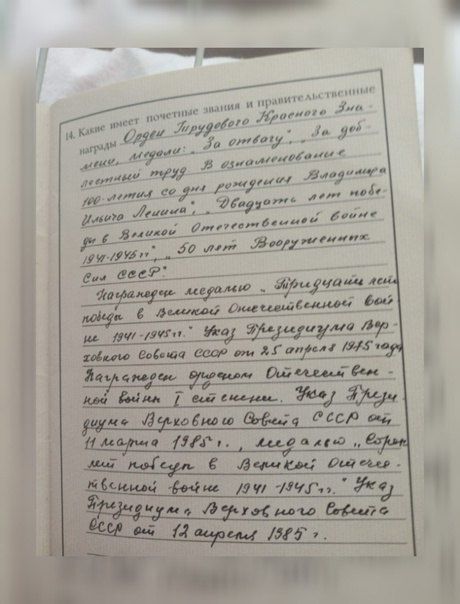 14. Какие имеет почетные звания и правительственные
награды Орден Трудового Красного Зна-
мени, медали: „За отвагу", „За доб-
лестный труд В ознаменование
100-летия со дня рождения Владимира
Ильича Ленина", „Двадцать лет побе-
ды в Великой Отечественной войне
1941-1945 гг", „50 лет Вооруженных
Сил СССР"
Награжден медалью „Тридцать лет
победы в Великой Отечественной вой-
не 1941-1945 гг." Указ Президиума Вер-
ховного Совета СССР от 25 апреля 1975 года
Награжден орденом Отечествен-
ной войны I степени. Указ Прези-
диума Верховного Совета СССР от
11 марта 1985 г., медалью „Сорок
лет победы в Великой Отече-
ственной войне 1941-1945 гг." Указ
Президиума Верховного Совета
СССР от 12 апреля 1985 г.